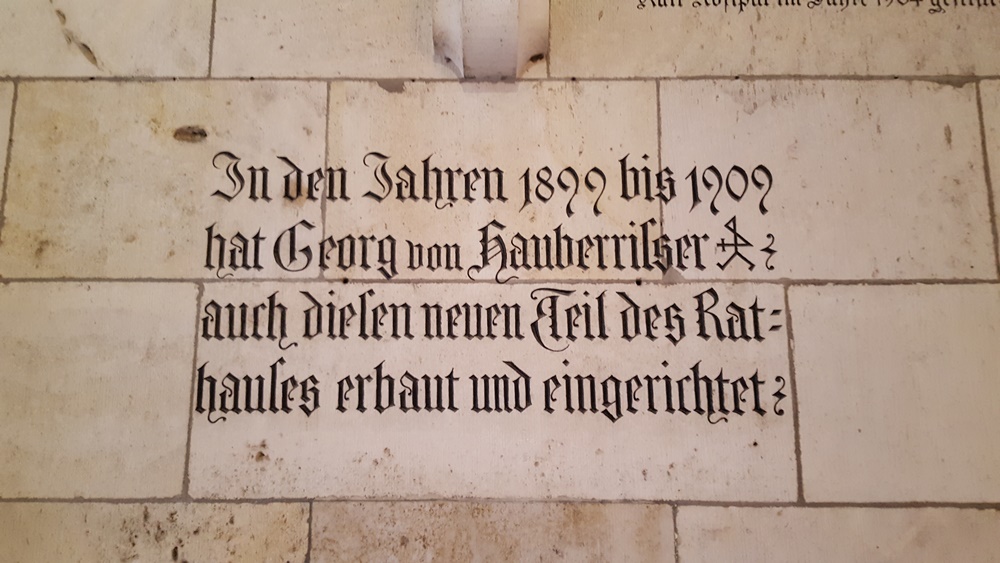 im Jahre 1904
In den Jahren 1899 bis 1909
hat Georg von Hauberriſser
auch dieſen neuen Teil des Rat⸗
hauſes erbaut und eingerichtet